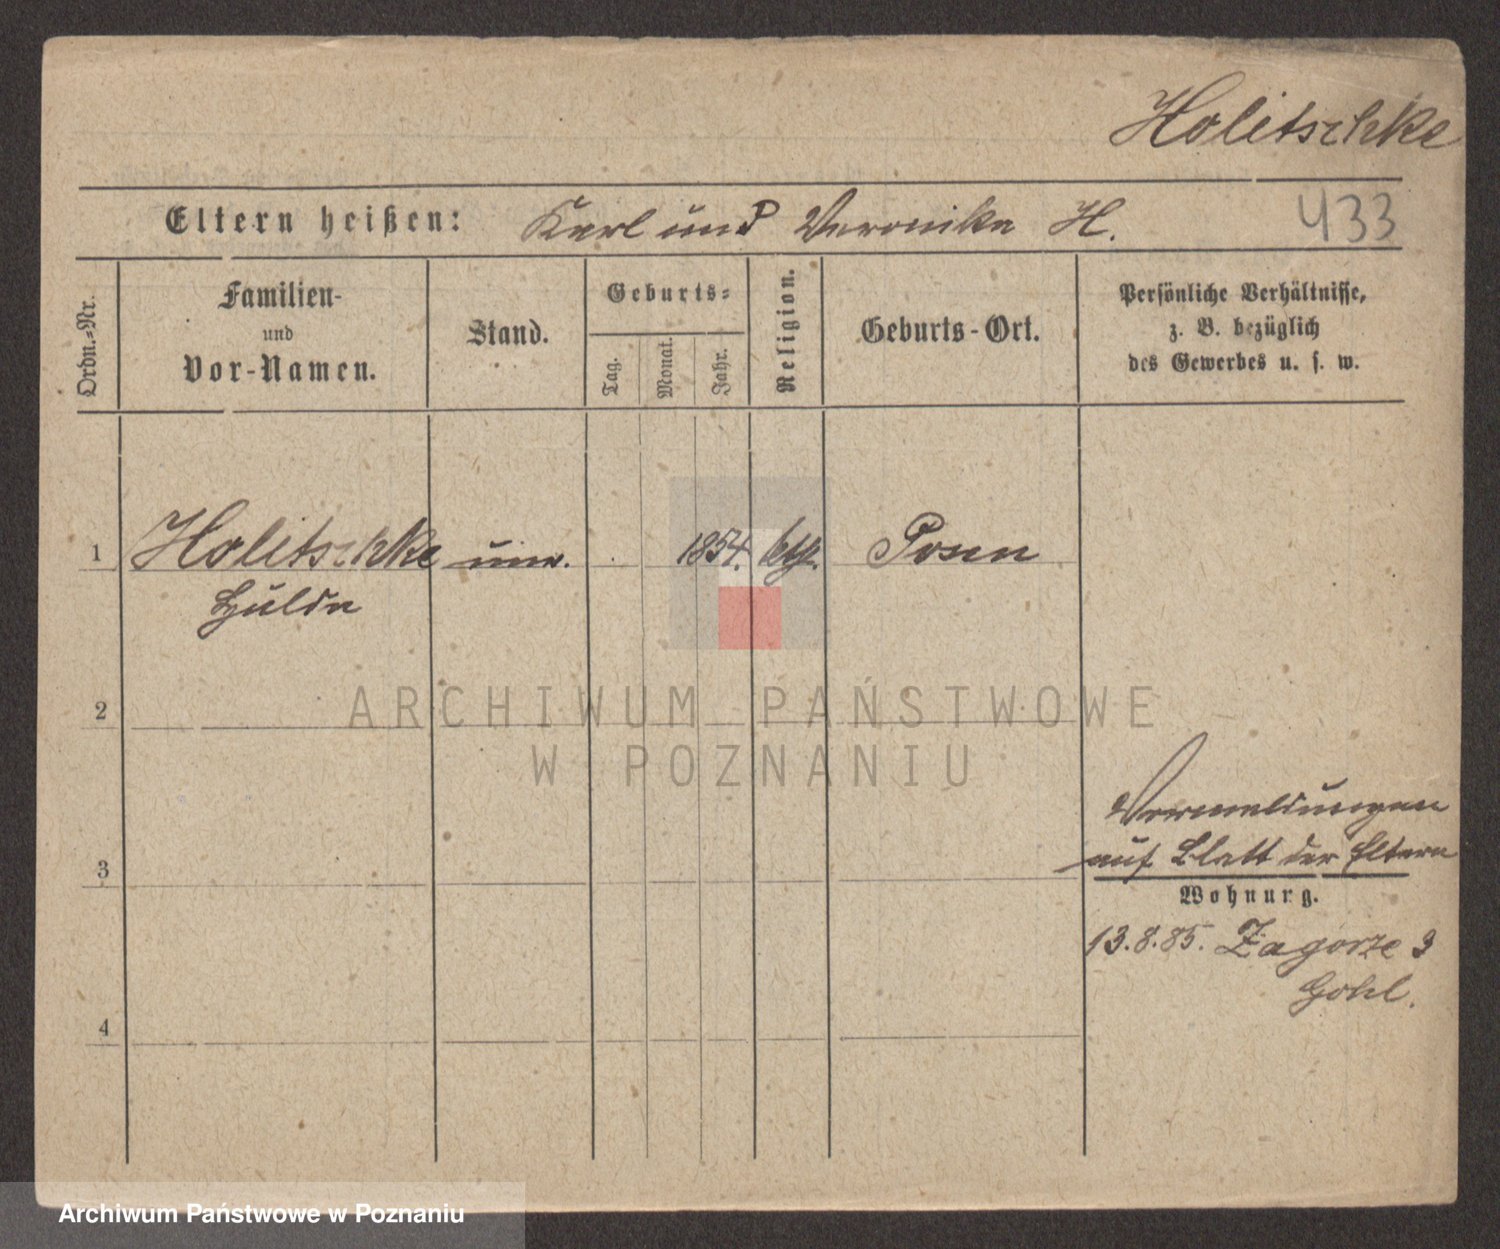 Holitschke
Eltern heißen: Karl und Veronika H. 433
Ordn.-Nr.
Familien-
und
Vor-Namen.
Stand.
Geburts=
Tag.
Monat.
Jahr.
Religion.
Geburts-Ort.
Persönliche Verhältnisse,
z. B. bezüglich
des Gewerbes u. s. w.
1 Holitschke unv. 1854. ktp. Posen
Hulda
2
ARCHIWUM PAŃSTWOWE
W POZNANIU
Vermeldungen
auf Blatt der Eltern
3
Wohnung.
13.8.85. Zagorze 3
Gohl.
4
Archiwum Państwowe w Poznaniu